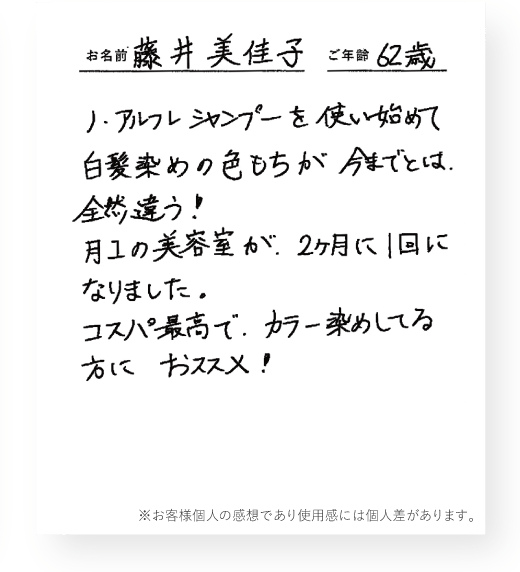 お名前 藤井美佳子 ご年齢 62歳
ノ・アルフレ シャンプーを使い始めて
白髪染めの色もちが 今までとは、
全然違う!
月1の美容室が、2ヶ月に1回に
なりました。
コスパ最高で、カラー染めしてる
方に おススメ!
※お客様個人の感想であり使用感には個人差があります。